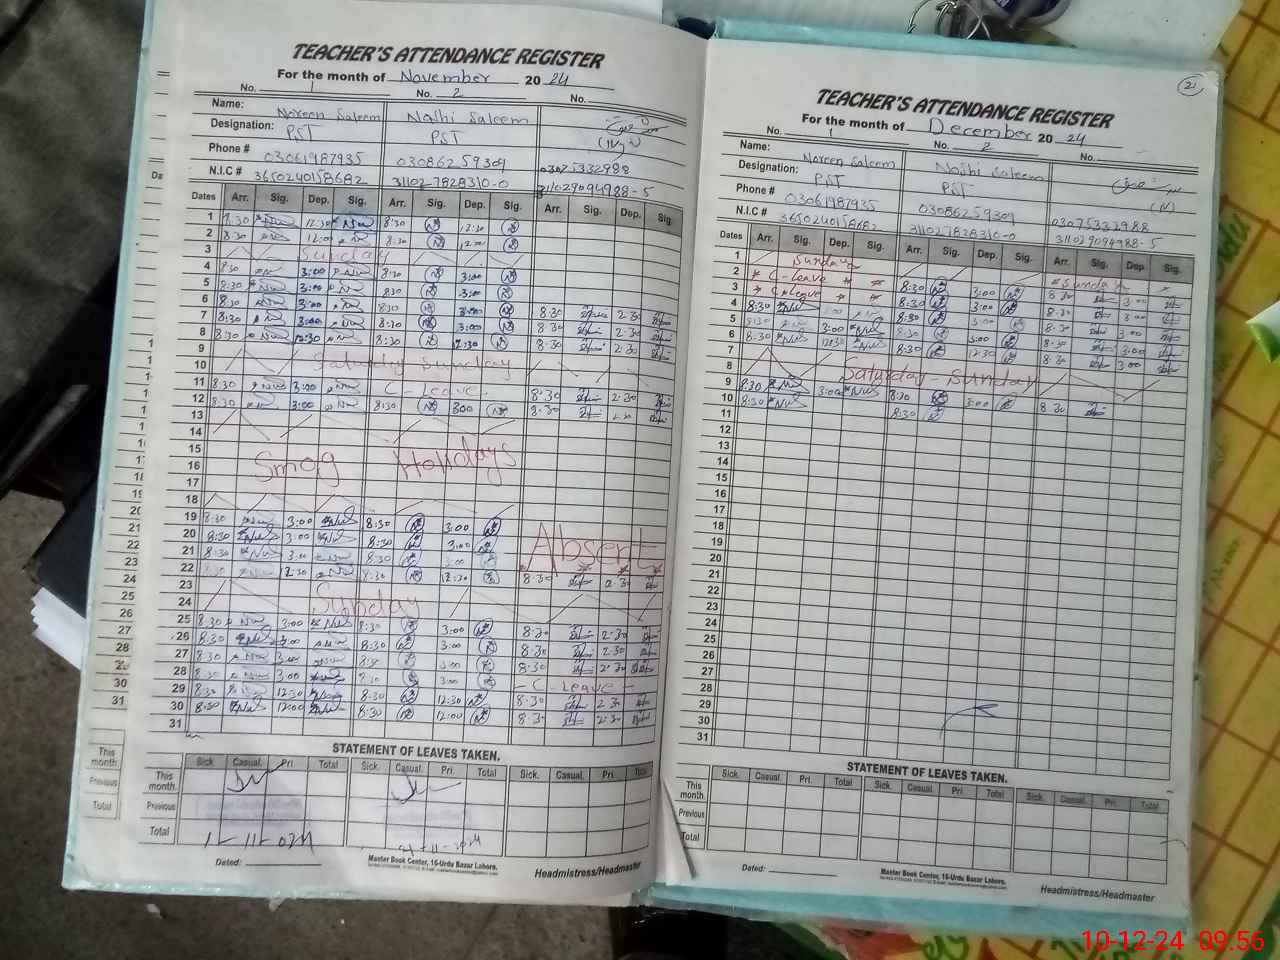 TEACHER'S ATTENDANCE REGISTER
For the month of November 20 24
No. 1 No. 2 No.
Name: Noreen Saleem Nashi Saleem
Designation: PST PST
Phone # 03061987935 03086259309 03075332988
N.I.C # 3650240158682 311027828310-0 311029094988-5
Dates Arr. Sig. Dep. Sig. Arr. Sig. Dep. Sig. Arr. Sig. Dep. Sig.
1 8:30 12:30 8:30 12:30
2 8:30 12:00 8:30 12:00
3 Sunday
4 8:30 3:00 8:30 3:00
5 8:30 3:00 8:30 3:00
6 8:30 3:00 8:30 3:00 8:30 2:30
7 8:30 3:00 8:30 3:00 8:30 2:30
8 8:30 12:30 8:30 12:30 8:30 2:30
9
10 Saturday Sunday
11 8:30 3:00 C-Leave 8:30 2:30
12 8:30 3:00 8:30 3:00 8:30 2:30
13
14
15
16 Smog Holidays
17
18
19 8:30 3:00 8:30 3:00
20 8:30 3:00 8:30 3:00 Absent
21 8:30 3:00 8:30 3:00
22 8:30 12:30 8:30 12:30 8:30 2:30
23
24 Sunday
25 8:30 3:00 8:30 3:00 8:30 2:30
26 8:30 3:00 8:30 3:00 8:30 2:30
27 8:30 3:00 8:30 3:00 8:30 2:30
28 8:30 3:00 8:30 3:00 - C - Leave -
29 8:30 12:30 8:30 12:30 8:30 2:30
30 8:30 12:00 8:30 12:00 8:30 2:30
31
STATEMENT OF LEAVES TAKEN.
Sick. Casual. Pri. Total Sick. Casual. Pri. Total Sick. Casual. Pri. Total
This month.
Previous
Total
Dated:
Master Book Center, 16-Urdu Bazar Lahore.
Headmistress/Headmaster
21
TEACHER'S ATTENDANCE REGISTER
For the month of December 20 24
No. 1 No. 2 No.
Name: Noreen Saleem Nashi Saleem
Designation: PST PST
Phone # 03061987935 03086259309 03075332988
N.I.C # 3650240158682 311027828310-0 311029094988-5
Dates Arr. Sig. Dep. Sig. Arr. Sig. Dep. Sig. Arr. Sig. Dep. Sig.
1 Sunday Sunday
2 C-Leave 8:30 3:00 8:30 3:00
3 C-Leave 8:30 3:00 8:30 3:00
4 8:30 3:00 8:30 3:00 8:30 3:00
5 8:30 3:00 8:30 3:00 8:30 3:00
6 8:30 12:30 8:30 12:30 8:30 3:00
7
8 Saturday - Sunday
9 8:30 3:00 8:30 3:00 8:30
10 8:30 8:30
11
12
13
14
15
16
17
18
19
20
21
22
23
24
25
26
27
28
29
30
31
STATEMENT OF LEAVES TAKEN.
Sick. Casual. Pri. Total Sick. Casual. Pri. Total Sick. Casual. Pri. Total
This month.
Previous
Total
Dated:
Master Book Center, 16-Urdu Bazar Lahore.
Headmistress/Headmaster
10-12-24 09:56